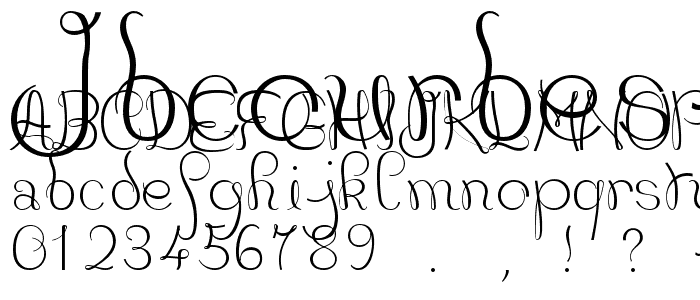 Jbecurbes
ABCDEFGHIJKLMNOP
abcdefghijklmnopqrst
0123456789 . , ! ?